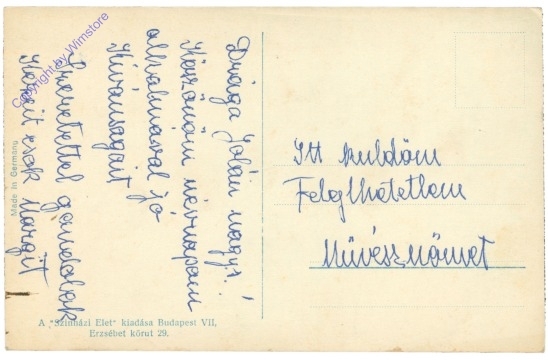 Drága Jolán nagys.!
Köszönöm névnapom
alkalmával jó
Kívánságait
Szeretettel gondolok
csak Margit
Itt küldöm
Felejlhetetlem
Művésznőmet
Made in Germany
A "Színházi Élet" kiadása Budapest VII,
Erzsébet körut 29.
Copyright by Wimstore